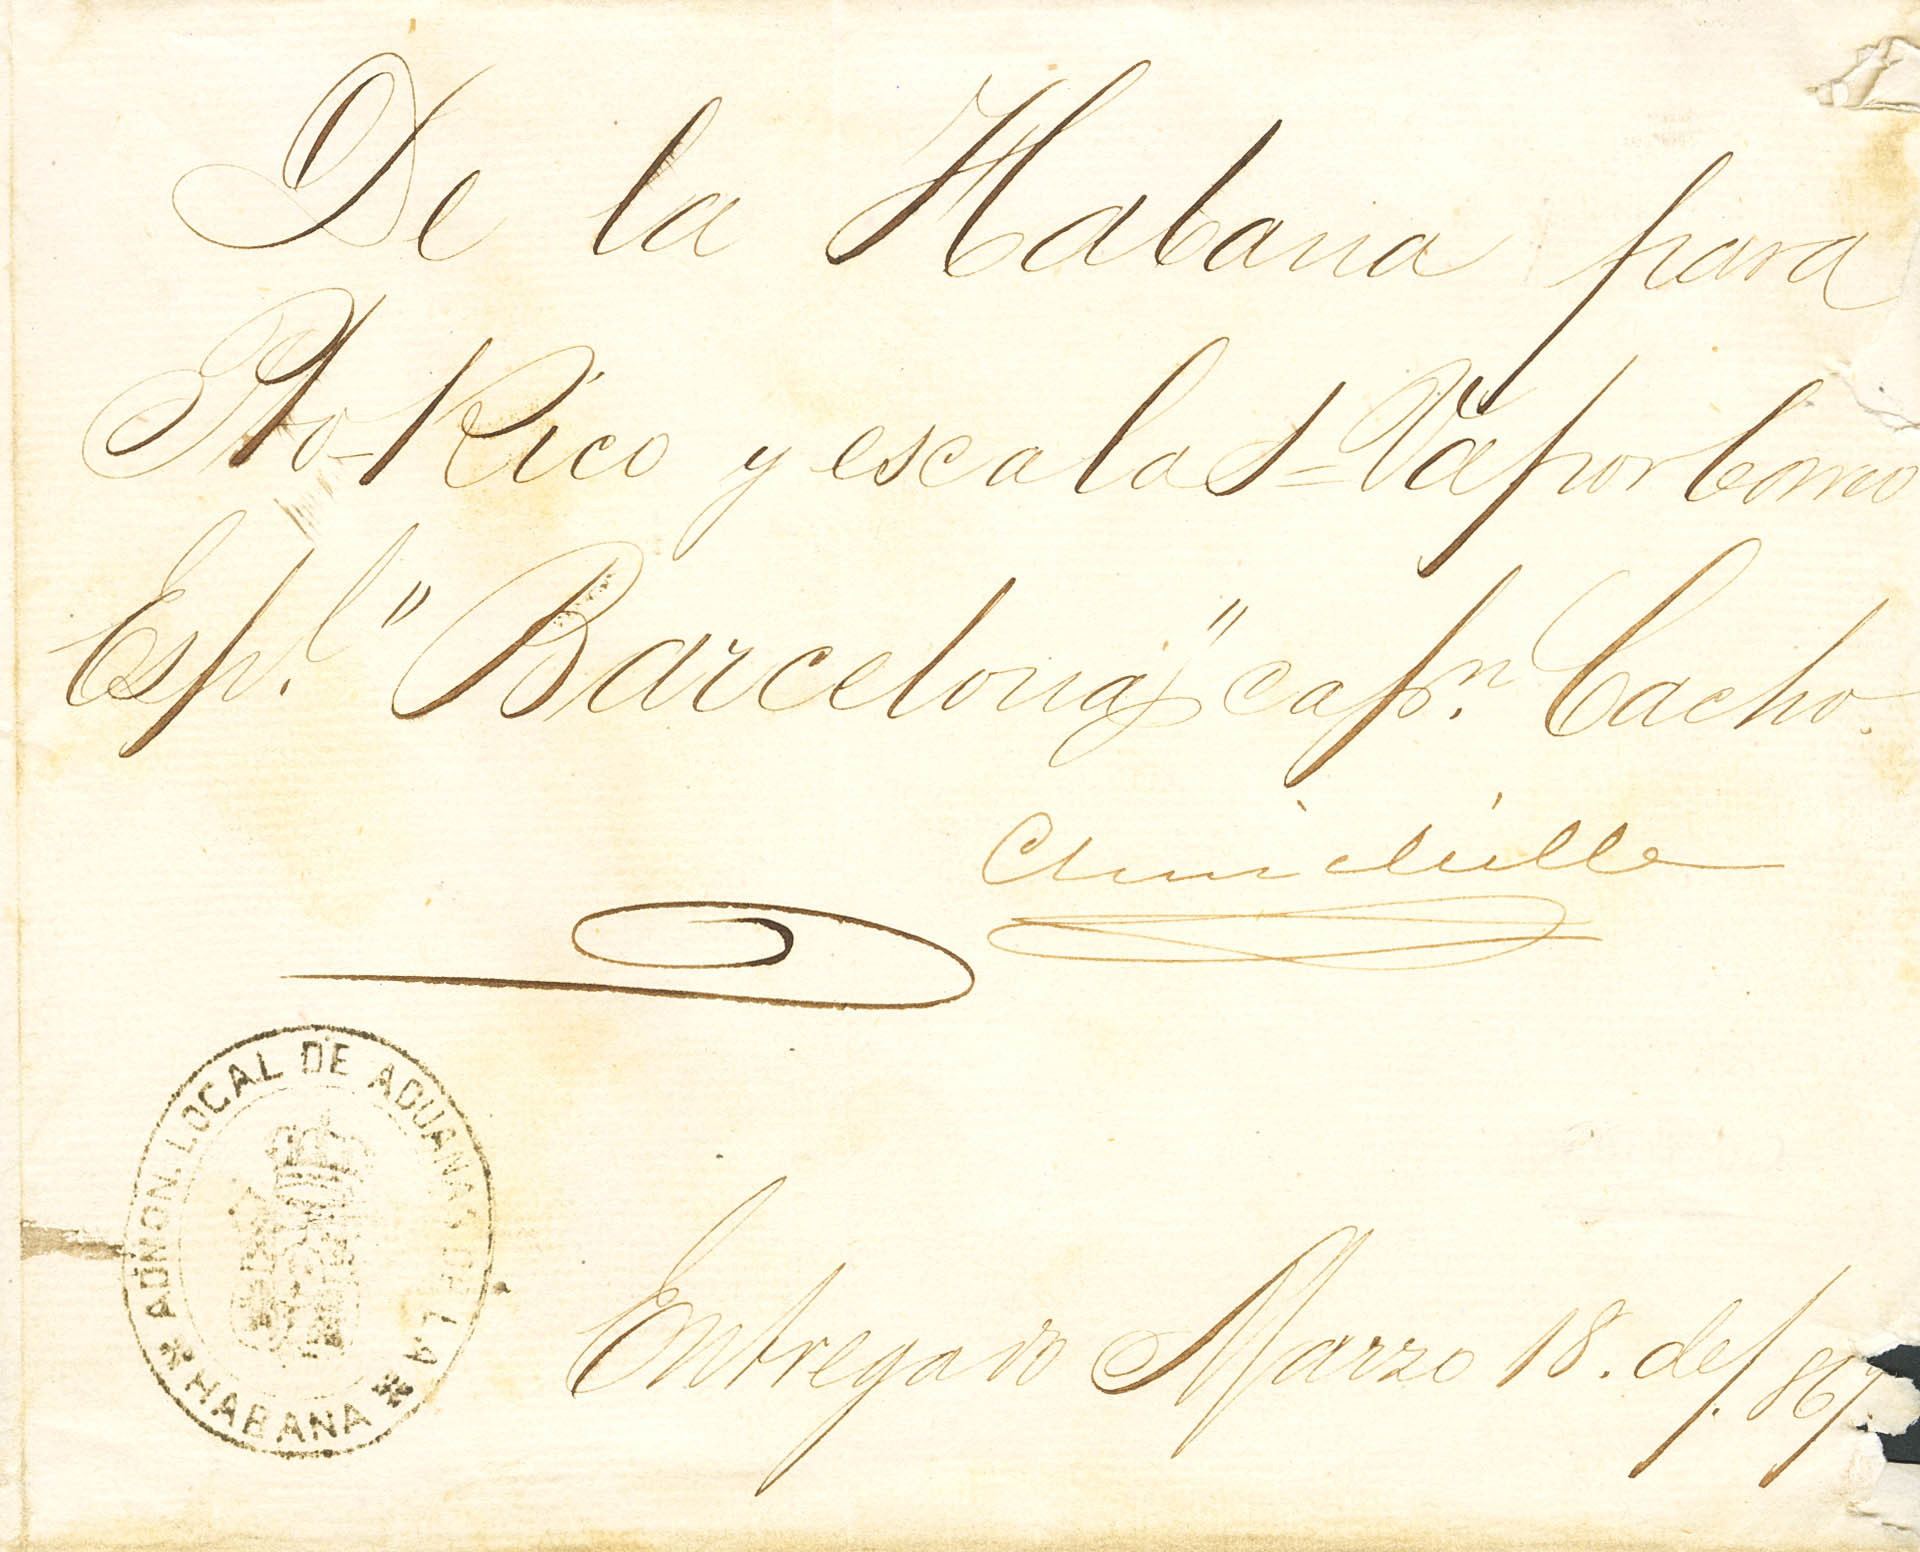 De la Habana para
Pto-Rico y escalas = Vapor Correo
Esp.l "Barcelona" cap.n Cacho.
ADMON. LOCAL DE ADUANAS DE LA
HABANA
Entregado Marzo 18. de/.867